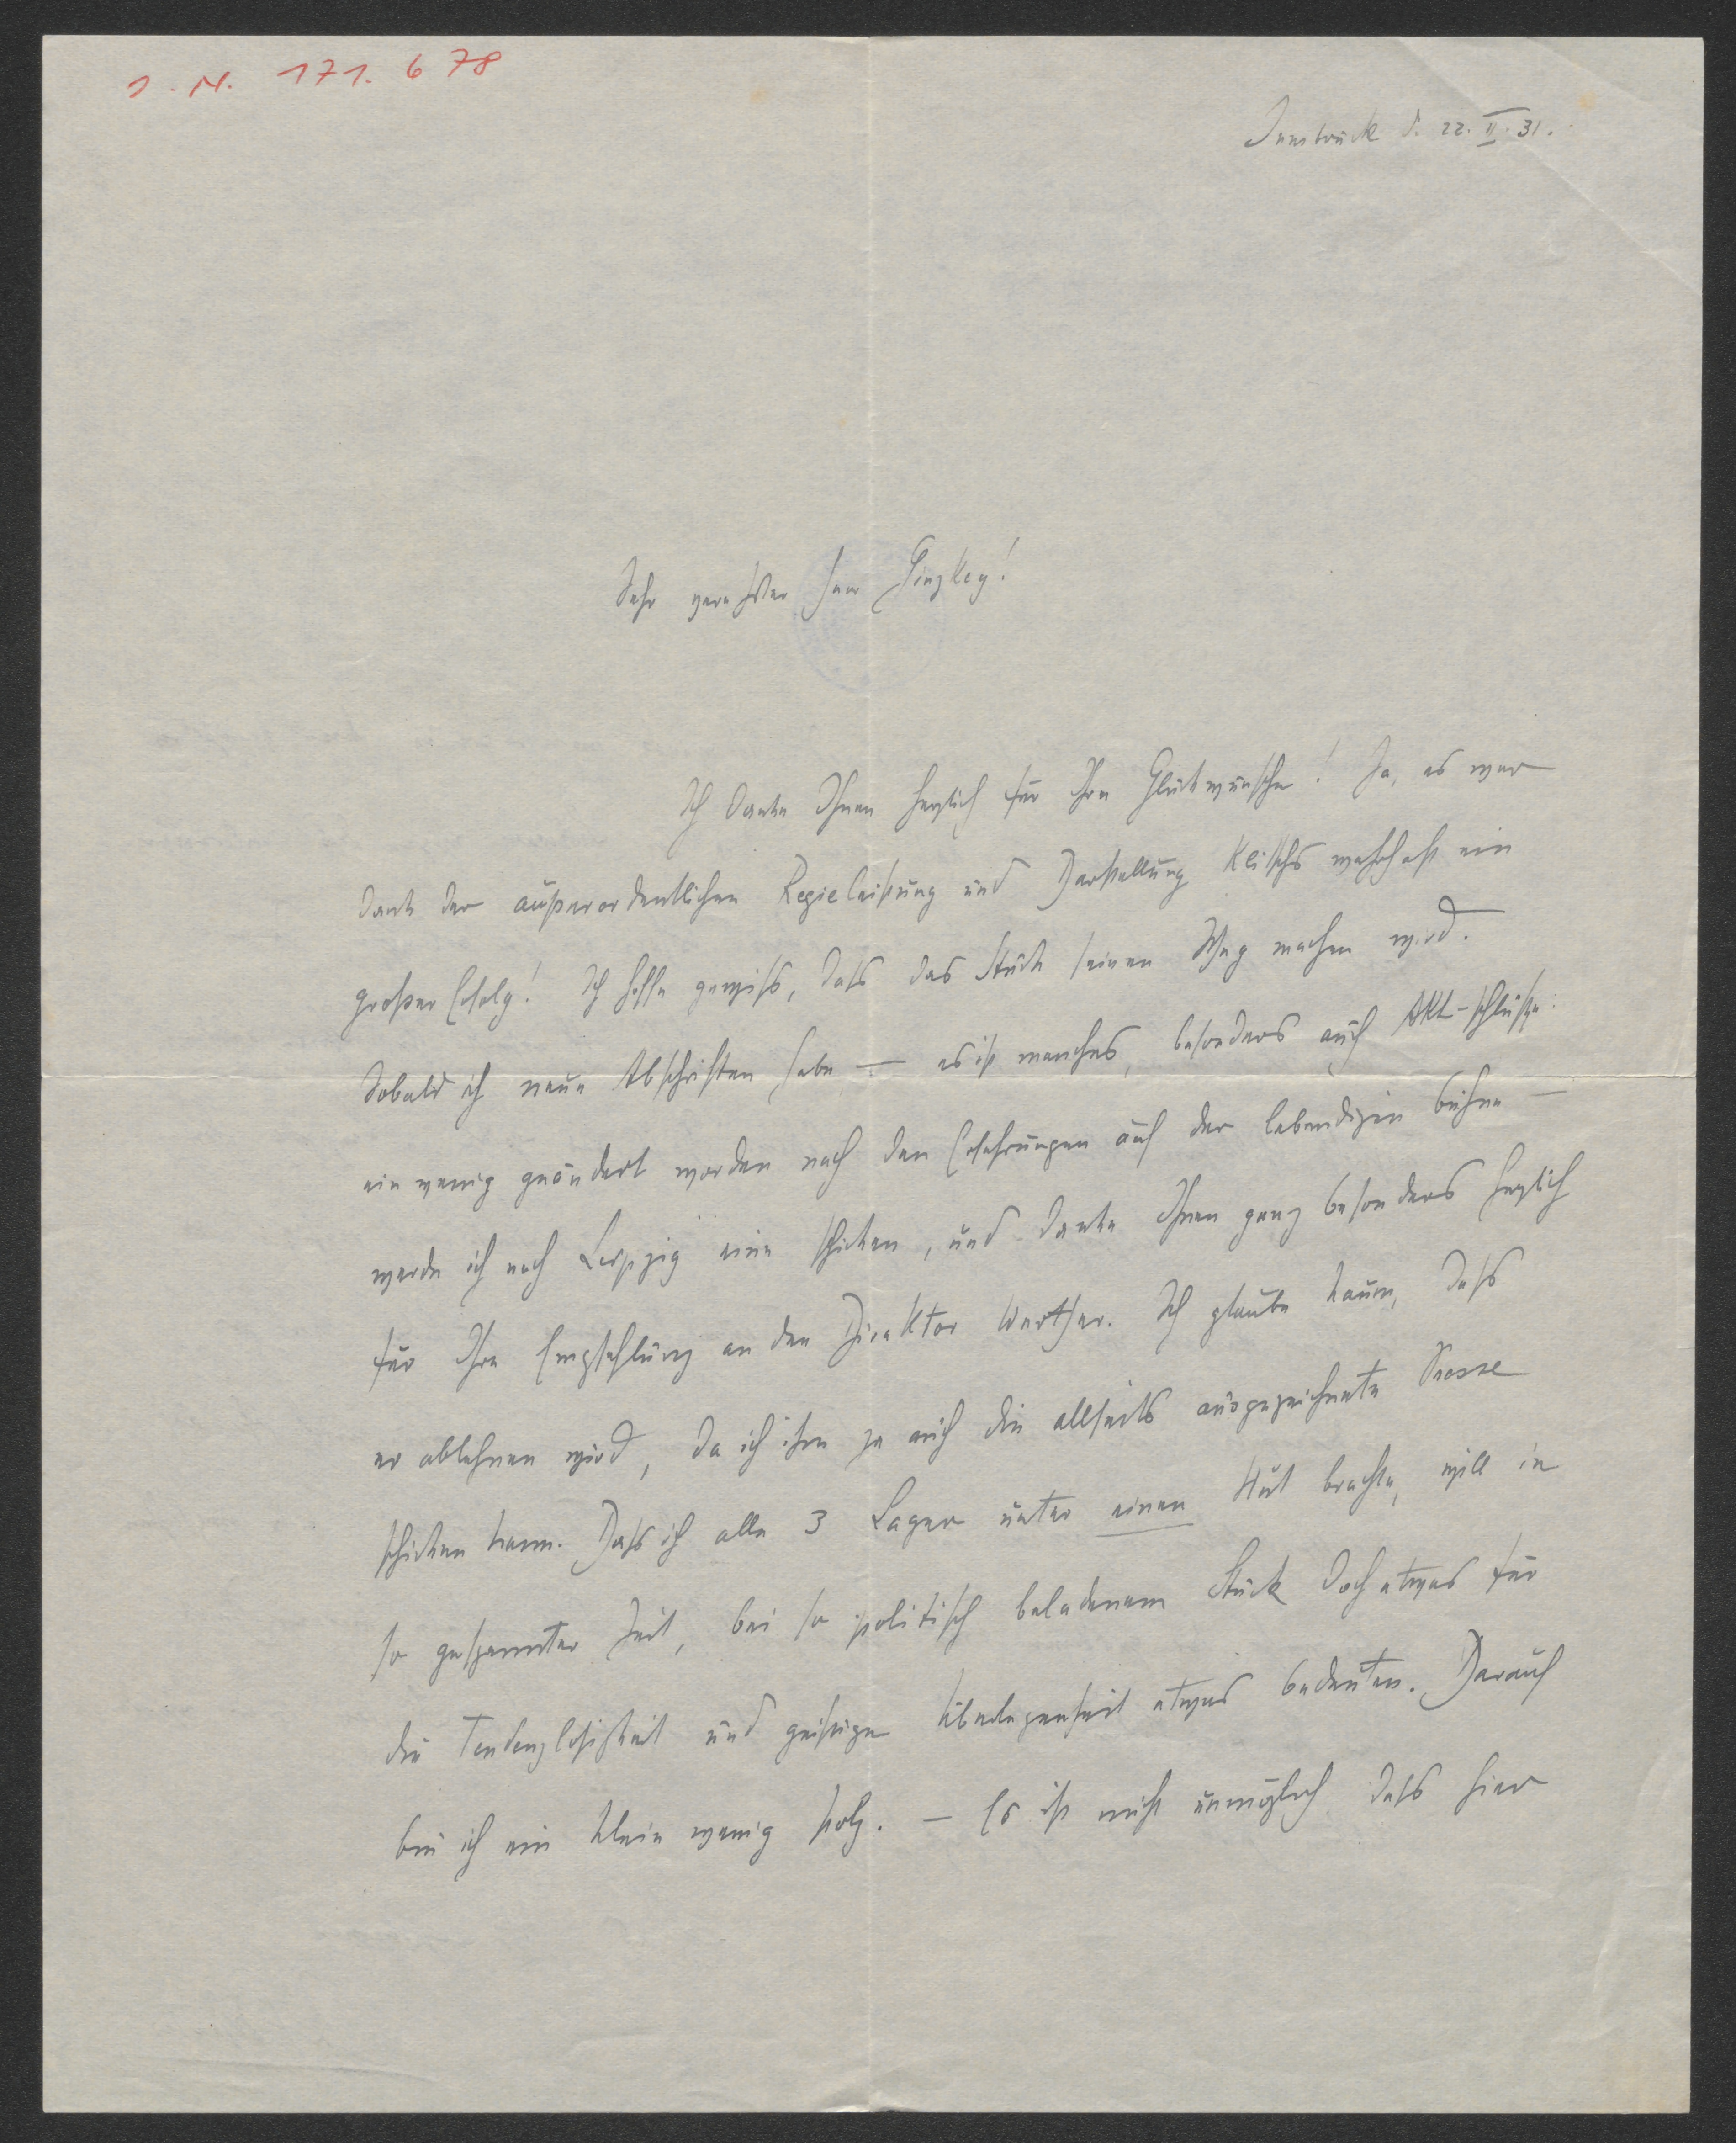 J. N. 171.678
Innsbruck d. 22. II. 31.
Sehr verehrter Herr Ginzkey!
Ich danke Ihnen herzlich für Ihre Glückwünsche! Ja, es war
dank der außerordentlichen Regieleistung und Darstellung Klitschs wahrhaft ein
großer Erfolg! Ich hoffe gewiss, dass das Stück seinen Weg machen wird.
Sobald ich neue Abschriften habe — es ist manches, besonders auch Akt-schlüsse
ein wenig geändert worden nach den Erfahrungen auf der lebendigen Bühne —
werde ich nach Leipzig eine schicken, und danke Ihnen ganz besonders herzlich
für Ihre Empfehlung an den Direktor Werther. Ich glaube kaum, dass
er ablehnen wird, da ich ihm ja auch die allseits ausgezeichnete Presse
schicken kann. Dass ich alle 3 Lager unter einen Hut brachte, will in
so gespannter Zeit, bei so politisch beladenem Stück doch etwas für
die Tendenzlosigkeit und geistige Überlegenheit etwas bedeuten. Darauf
bin ich ein klein wenig stolz. — Es ist nicht unmöglich dass hier